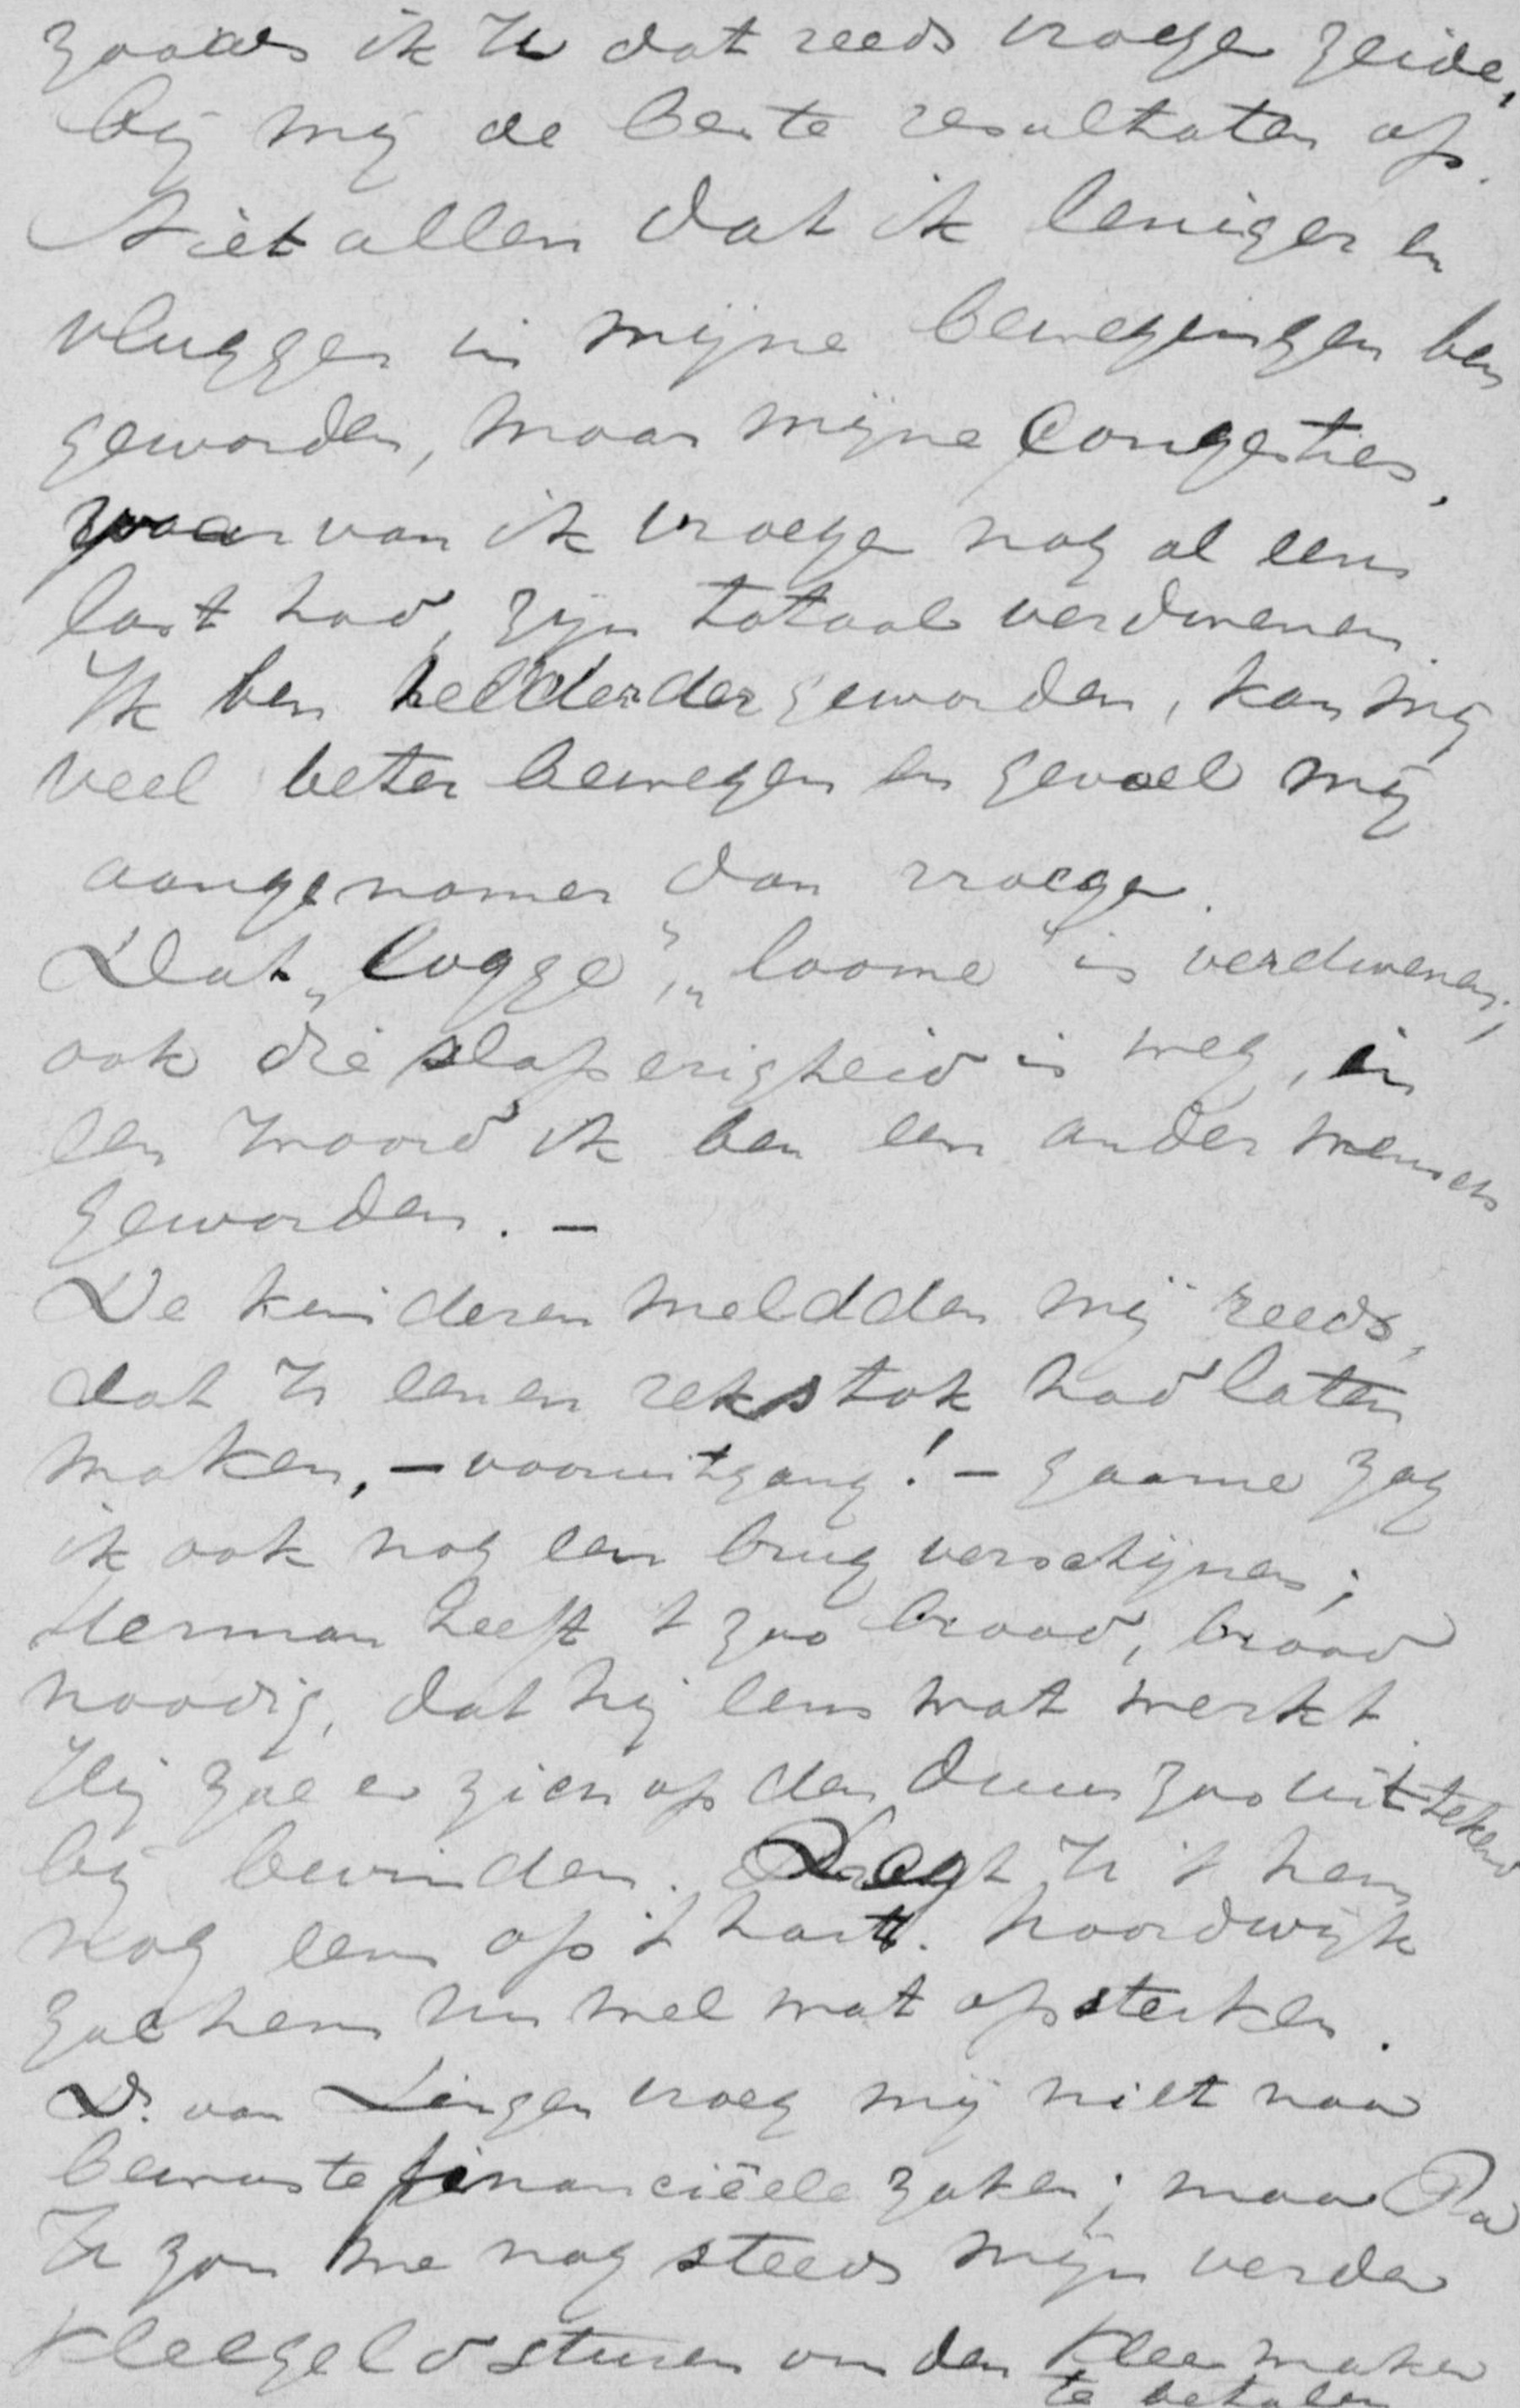 zooals ik U dat reeds vroeger zeide,
bij mij de beste resultaten op.
Niet alleen dat ik leniger en
vlugger in mijne bewegingen ben
geworden, maar mijne congesties,
waarvan ik vroeger nog al eens
last had, zijn totaal verdwenen.
Ik ben helderder geworden, kan mij
veel beter bewegen en gevoel mij
aangenamer dan vroeger.
Dat „logge", „loome" is verdwenen;
ook die slaperigheid is weg, in
een woord ik ben een ander mensch
geworden. —
De kinderen meldden mij reeds,
dat U eenen rekstok had laten
maken, — vooruitgang! — gaarne zag
ik ook nog een brug verschijnen;
Herman heeft 't zoo brood, brood
noodig, dat hij eens wat werkt.
Hij zal er zich op den duur zoo uitstekend
bij bevinden. Legt U 't hem
nog eens op 't hart. Noordwijk
zal hem nu wel wat opsterken.
Dr. van Lingen vroeg mij niet naar
bewuste financiëele zaken; maar Pa
U zou me nog steeds mijn verder
kleegeld sturen om den kleermaker
te betalen